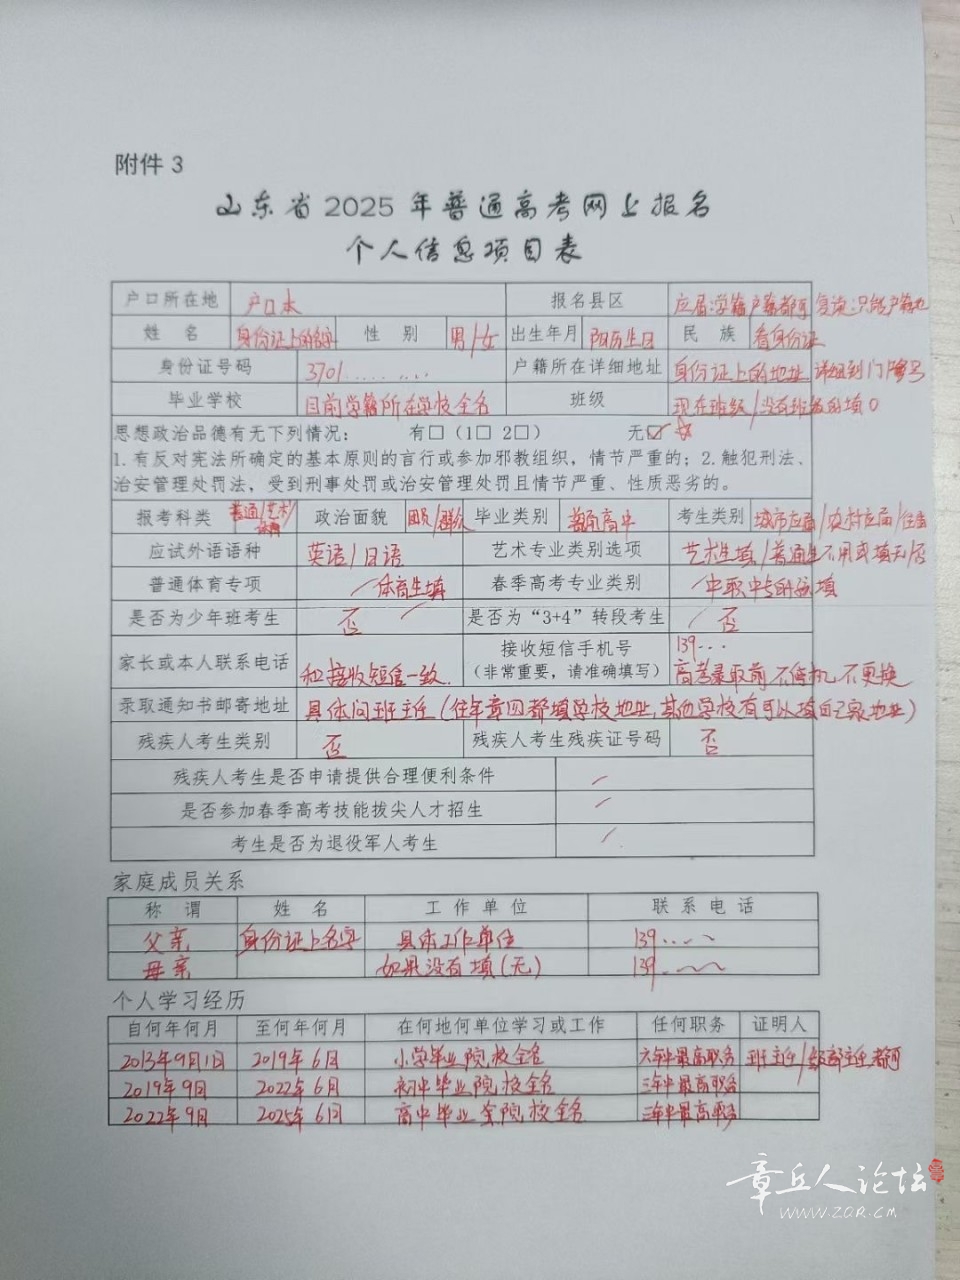 附件 3
山东省 2025 年普通高考网上报名
个人信息项目表
户口所在地 户口本 报名县区 应届:学籍户籍都可 复读:只能户籍地
姓 名 身份证上的名字 性 别 男/女 出生年月 阳历生日 民 族 看身份证
身份证号码 3701......... 户籍所在详细地址 身份证上的地址 详细到门牌号
毕业学校 目前学籍所在学校全名 班级 现在班级/没有班级的填0
思想政治品德有无下列情况： 有□（1□ 2□） 无☑
1.有反对宪法所确定的基本原则的言行或参加邪教组织，情节严重的；2.触犯刑法、
治安管理处罚法，受到刑事处罚或治安管理处罚且情节严重、性质恶劣的。
报考科类 普通/艺术/体育 政治面貌 团员/群众 毕业类别 普通高中 考生类别 城市应届/农村应届/往届
应试外语语种 英语/日语 艺术专业类别选项 艺术生填/普通生不用或填无/否
普通体育专项 体育生填 春季高考专业类别 中职中专的学生填
是否为少年班考生 否 是否为“3+4”转段考生 否
家长或本人联系电话 和接收短信一致. 接收短信手机号 139...
（非常重要，请准确填写） 高考录取前不停机,不更换
录取通知书邮寄地址 具体问班主任（往年章四都填学校地址,其他学校有可以填自己家地址）
残疾人考生类别 否 残疾人考生残疾证号码 否
残疾人考生是否申请提供合理便利条件
是否参加春季高考技能拔尖人才招生
考生是否为退役军人考生
家庭成员关系
称 谓 姓 名 工 作 单 位 联 系 电 话
父亲 身份证上名字 具体工作单位 139...
母亲 如果没有填(无) 139...
个人学习经历
自何年何月 至何年何月 在何地何单位学习或工作 任何职务 证明人
2013年9月1日 2019年6月 小学毕业院校全名 六年中最高职务 班主任/级部主任都可
2019年9月 2022年6月 初中毕业院校全名 三年中最高职务
2022年9月 2025年6月 高中毕业院校全名 三年中最高职务
章丘人论坛
www.ZQR.CM